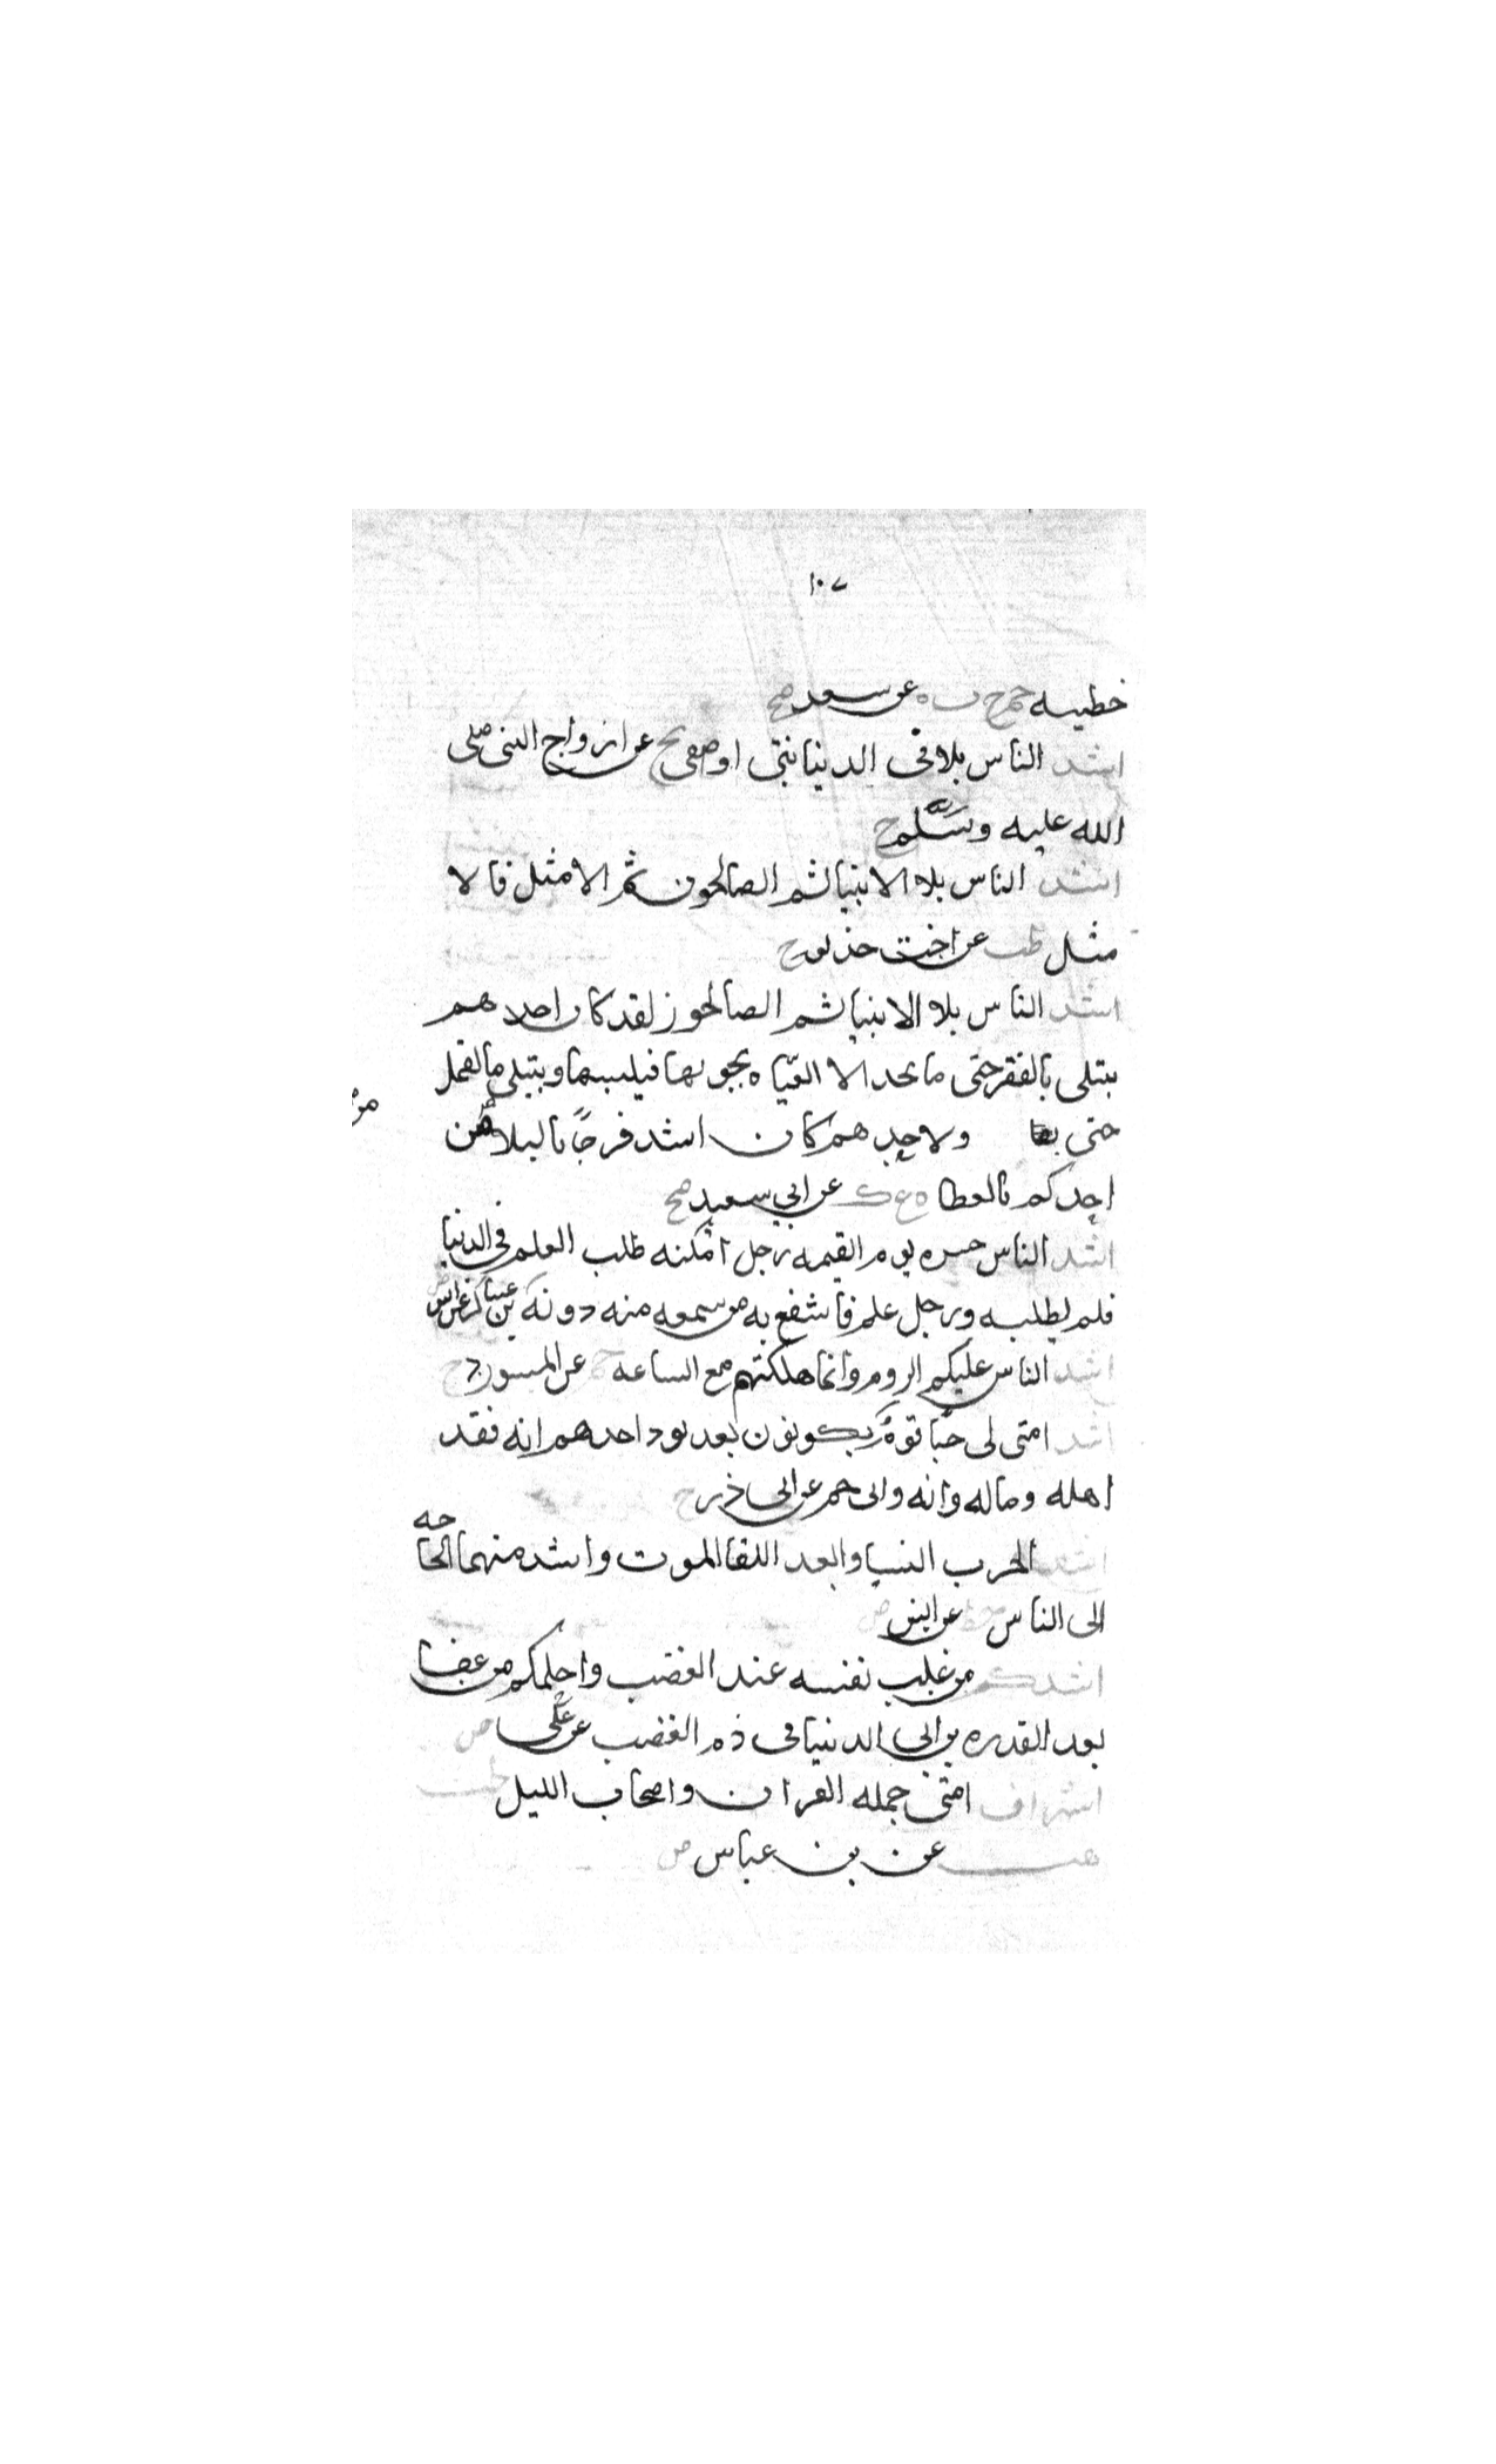 ١٠٧
خطيه حم خ ت ه عن سعد صح
اشد الناس بلا فى الدنيا نبى او صفى تخ عن ازواج النبى صلى
الله عليه وسلم ح
اشد الناس بلا الانبيا ثم الصالحون ثم الامثل فالا
مثل طب عن اخت حذيفه ح
اشد الناس بلا الانبيا ثم الصالحون لقد كان احدهم
يبتلى بالفقر حتى ما يجد الا العباه يجوبها فيلبسها ويبتلى بالقمل
حتى ولاحدهم كان اشد فرحا بالبلا من
احدكم بالعطا ه ع ك عن ابي سعيد صح
اشد الناس حسره يوم القيمه رجل امكنه طلب العلم فى الدنيا
فلم يطلبه ورجل علم فانتفع به من سمعه منه دونه بن عساكر عن انس
اشد الناس عليكم الروم وانما هلكتهم مع الساعه حم عن المستورد ح
اشد امتى لى حبا قوم يكونون بعدى يود احدهم انه فقد
اهله وماله وانه رانى حم عن ابى ذر ح
اشد الحرب النسا وابعد اللقا الموت واشد منهما الحا
جه
الى الناس خط عن انس ض
اشدكم من غلب نفسه عند الغضب واحلمكم من عفا
بعد القدره بن ابى الدنيا فى ذم الغضب عن على ض
اشراف امتى حمله القران واصحاب الليل طب
هب عن بن عباس ض